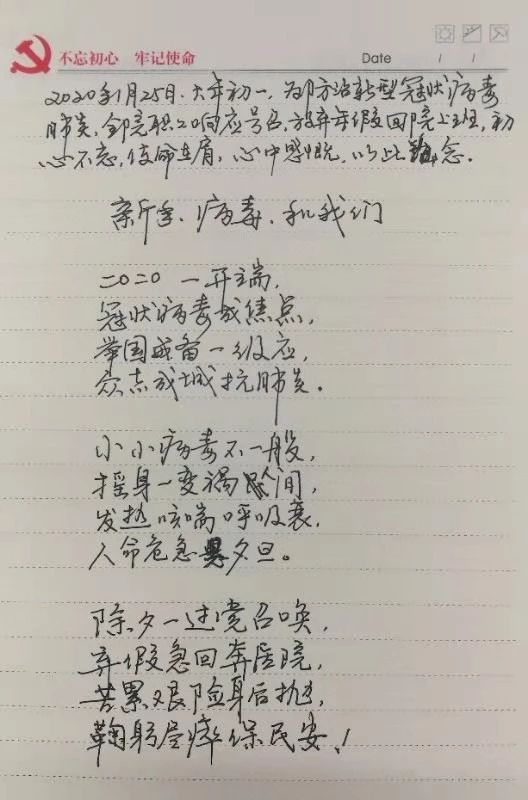 不忘初心 牢记使命
Date / /
2020年1月25日.大年初一,为防治新型冠状病毒
肺炎,全院职工响应号召,放弃年假回院上班,初
心不忘,使命在肩,心中感慨,以此为念.
新年、病毒、和我们
二〇二〇一开端,
冠状病毒成焦点,
举国戒备一级应,
众志成城抗肺炎.
小小病毒不一般,
摇身一变祸人间,
发热咳喘呼吸衰,
人命危急夕旦。
除夕一过党召唤,
弃假急回奔医院,
苦累艰险身后抛,
鞠躬尽瘁保民安!